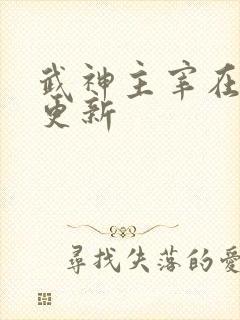 武神主宰在
更新
尋找失落的愛